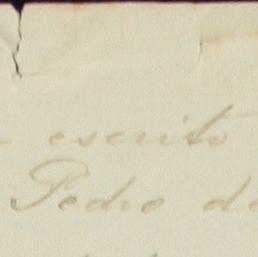 escrito
Pedro de